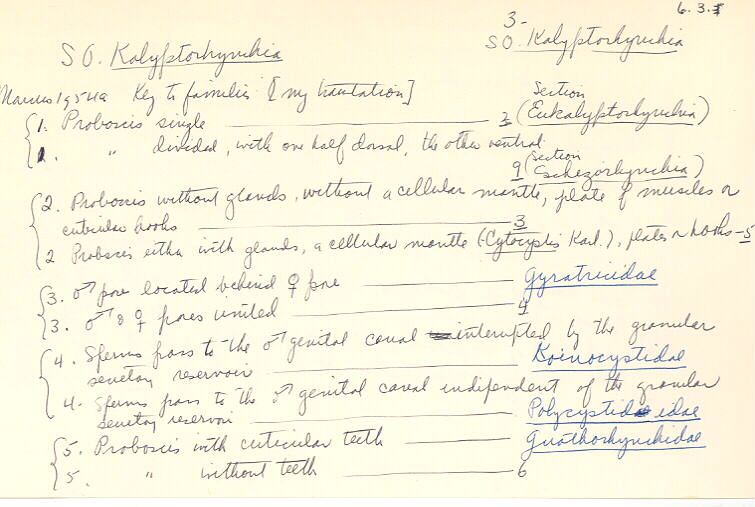 6.3.
3-
SO. Kalyptorhynchia
SO. Kalyptorhynchia
Marcus 1954a Key to families [my translation]
1. Proboscis single 2 (Section Eukalyptorhynchia)
1. " divided, with one half dorsal, the other ventral
9 (Section Schizorhynchia)
2. Proboscis without glands, without a cellular mantle, plate of muscles or
cuticular hooks 3
2 Proboscis either with glands, a cellular mantle (Cytocystis Karl.), plates or hooks - 5
3. ♂ pore located behind ♀ pore Gyratricidae
3. ♂ & ♀ pores united 4
4. Sperms pass to the ♂ genital canal interrupted by the granular
secretory reservoir Koinocystidae
4. Sperms pass to the ♂ genital canal independent of the granular
secretory reservoir Polycystididae
5. Proboscis with cuticular teeth Gnathorhynchidae
5. " without teeth 6